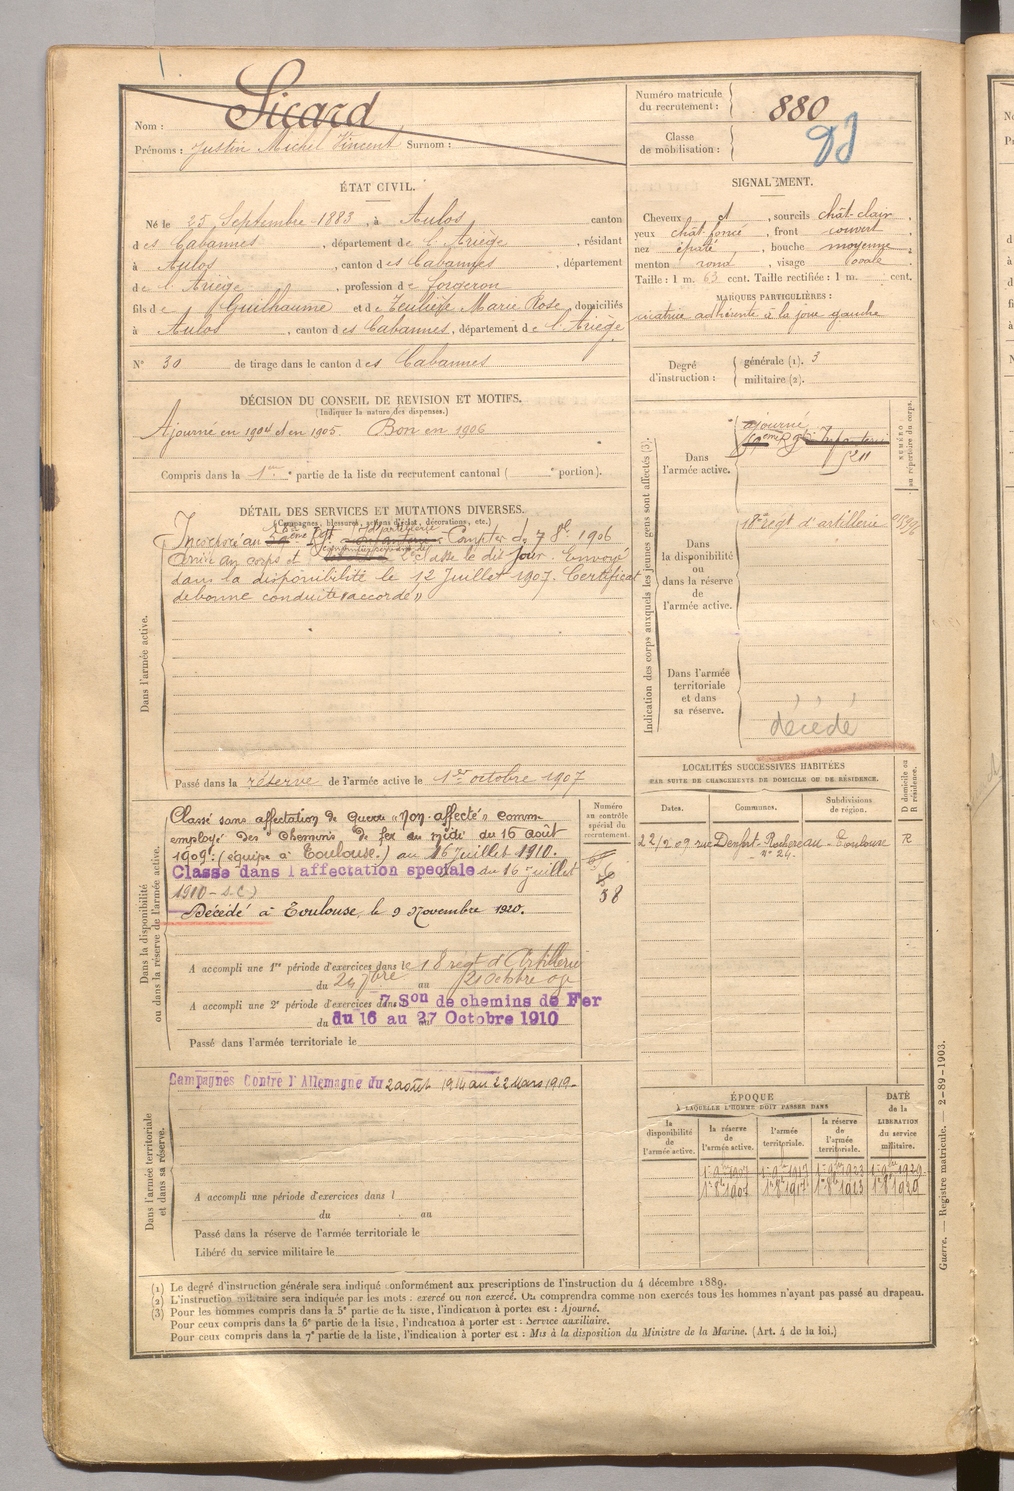 Nom : Sicard
Prénoms : Justin Michel Vincent Surnom :
Numéro matricule
du recrutement : 880
Classe
de mobilisation :
ÉTAT CIVIL.
Né le 25 Septembre 1883, à Aulos, canton
des Cabannes, département de l'Ariège, résidant
à Aulos, canton des Cabannes, département
de l'Ariège, profession de forgeron
fils de Guilhaume et de Teulière Marie Rose, domiciliés
à Aulos, canton des Cabannes, département de l'Ariège
N° 30 de tirage dans le canton des Cabannes
SIGNALEMENT.
Cheveux et, sourcils chât-clair,
yeux chât-foncé, front couvert,
nez épaté, bouche moyenne,
menton rond, visage ovale
Taille : 1 m. 63 cent. Taille rectifiée : 1 m. cent.
MARQUES PARTICULIÈRES :
cicatrice adhérente à la joue gauche
Degré
d'instruction :
générale (1). 3
militaire (2).
DÉCISION DU CONSEIL DE REVISION ET MOTIFS.
(Indiquer la nature des dispenses.)
Ajourné en 1904 et en 1905. Bon en 1906
Compris dans la 1ere partie de la liste du recrutement cantonal ( e portion).
DÉTAIL DES SERVICES ET MUTATIONS DIVERSES.
(Campagnes, blessures, actions d'éclat, décorations, etc.)
Incorporé au 18e 59eme Régt d'artillerie d'Infanterie à Compter du 7 8bre 1906
Arrivé au corps et 2e Classe le dit jour. Envoyé
dans la disponibilité le 12 Juillet 1907. Certificat
de bonne conduite "accordé"
Dans l'armée active.
Passé dans la réserve de l'armée active le 1er octobre 1907
Indication des corps auxquels les jeunes gens sont affectés (3).
Dans
l'armée active.
ajourné
59eme Rgt Infanterie
NUMÉRO
au répertoire du corps.
Dans
la disponibilité
ou
dans la réserve
de
l'armée active.
18e régt d'artillerie
Dans l'armée
territoriale
et dans
sa réserve.
décédé
Dans la disponibilité
ou dans la réserve de l'armée active.
Classé sans affectation de Guerre "non-affecté" comme
employé des Chemins de fer du midi du 16 août
1909. (équipe à Toulouse.) au 16 Juillet 1910.
Classé dans l'affectation spéciale du 16 juillet
1910 - S.C.)
Décédé à Toulouse, le 9 Novembre 1920.
A accompli une 1re période d'exercices dans le 18 régt d'Artillerie
du 24 7bre au 21 Octobre 09
A accompli une 2e période d'exercices dans 7 Son de chemins de Fer
du 16 au 27 Octobre 1910
Passé dans l'armée territoriale le
Numéro
au contrôle
spécial du
recrutement.
58
LOCALITÉS SUCCESSIVES HABITÉES
PAR SUITE DE CHANGEMENTS DE DOMICILE OU DE RÉSIDENCE.
Dates.
Communes.
Subdivisions
de région.
D domicile ou
R résidence.
22/2 09 rue Denfert-Rochereau - Toulouse R
- n° 24 -
Dans l'armée territoriale
et dans sa réserve.
Campagnes Contre l'Allemagne du 2 août 1914 au 22 Mars 1919.
A accompli une période d'exercices dans l
du au
Passé dans la réserve de l'armée territoriale le
Libéré du service militaire le
ÉPOQUE
À LAQUELLE L'HOMME DOIT PASSER DANS
la
disponibilité
de
l'armée active.
la réserve
de
l'armée active.
l'armée
territoriale.
la réserve
de
l'armée
territoriale.
DATE
de la
LIBÉRATION
du service
militaire.
1er 8bre 1907 1er 8bre 1917 1er 8bre 1923 1er 8bre 1929
(1) Le degré d'instruction générale sera indiqué conformément aux prescriptions de l'instruction du 4 décembre 1889.
(2) L'instruction militaire sera indiquée par les mots : exercé ou non exercé. On comprendra comme non exercés tous les hommes n'ayant pas passé au drapeau.
(3) Pour les hommes compris dans la 5e partie de la liste, l'indication à porter est : Ajourné.
Pour ceux compris dans la 6e partie de la liste, l'indication à porter est : Service auxiliaire.
Pour ceux compris dans la 7e partie de la liste, l'indication à porter est : Mis à la disposition du Ministre de la Marine. (Art. 4 de la loi.)
Guerre. — Registre matricule. — 2-89-1903.